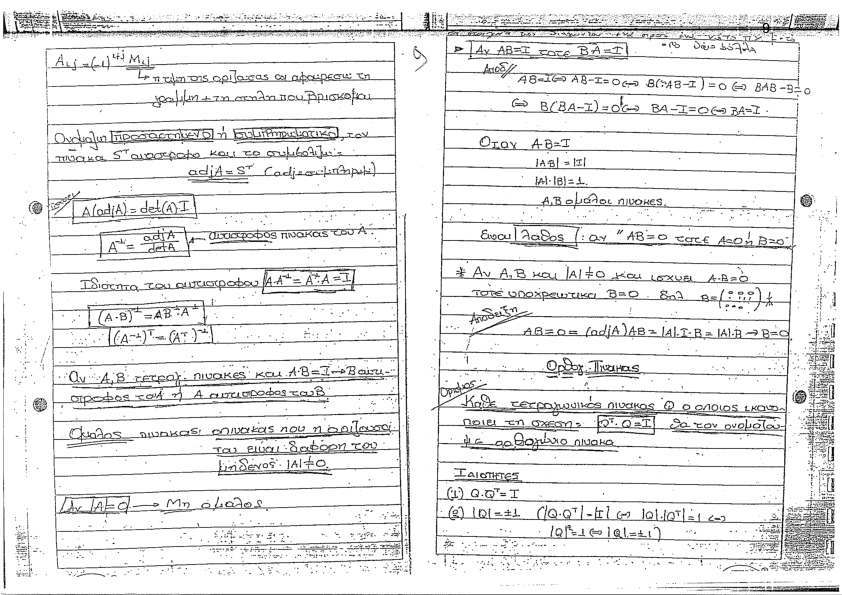 A_ij = (-1)^i+j M_ij
↳ η τιμη της ορίζουσας αν αφαιρεσω τη
γραμμη + τη στηλη που βρισκομαι
Ονομαζω προσαρτημενο ή συμπληρωματικο, του
πινακα S^T αναστροφο και το συμβολιζω:
adjA = S^T (adj = συμπληρωμ)
A(adjA) = det(A)·I
A^-1 = adjA / detA ← αντιστροφος πινακας του A.
Ιδιοτητα του αντιστροφου A·A^-1 = A^-1·A = I
(A·B)^-1 = B^-1·A^-1
(A^-1)^T = (A^T)^-1
Αν A,B τετραγ. πινακες και A·B = I → B αντι-
στροφος του A ή A αντιστροφος του B
Ομαλος πινακας: ο πινακας που η οριζουσα
του ειναι διαφορη του
μηδενος. |A| ≠ 0.
Αν |A| = 0 → Μη ομαλος.
9
9
▸ Αν AB = I τοτε BA = I
Αποδ// AB = I ⇔ AB - I = 0 ⇔ B(AB - I) = 0 ⇔ BAB - B = 0
⇔ B(BA - I) = 0 ⇔ BA - I = 0 ⇔ BA = I.
Οταν A·B = I
|AB| = |I|
|A|·|B| = 1.
A,B ομαλοι πινακες.
Ειναι λαθος: αν "AB = 0 τοτε A = 0 ή B = 0.
* Αν A,B και |A| ≠ 0 και ισχυει A·B = 0
τοτε υποχρεωτικα B = 0 δηλ B =
Αποδειξη
AB = 0 = (adjA)AB = |A|·I·B = |A|·B → B = 0
Ορθογ. Πινακας
Ορισμος
Καθε τετραγωνικος πινακας Q ο οποιος ικανο-
ποιει τη σχεση: Q^T·Q = I θα τον ονομαζου-
με ορθογωνιο πινακα
Ιδιοτητες
(1) Q·Q^T = I
(2) |Q| = ±1 (|Q·Q^T| = |I| ⇔ |Q|·|Q^T| = 1 ⇔
|Q|² = 1 ⇔ |Q| = ±1)